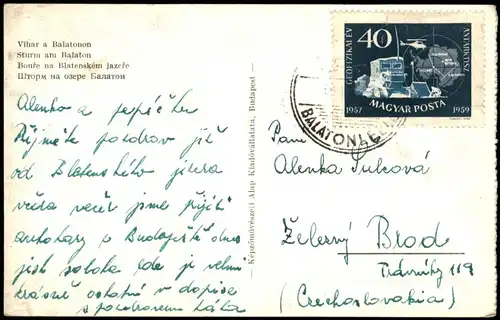 Vihar a Balatonon
Sturm am Balaton
Bouře na Blatenském jazeře
Шторм на озере Балатон
Alenko a pepíčku
Přijměte pozdrav již
od Blatenského jezera
včera večer jsme přijeli
autokary z Budapeště dnes
jest sobota kde je velmi
krásně ostatní v dopise
s pozdravem táta
Képzőművészeti Alap Kiadóvállalata, Budapest
GEOFIZIKAI ÉV
40 f
ANTARKTISZ
1957 MAGYAR POSTA 1959
BALATON
Paní
Alenka Šulcová
Železný Brod
Trávníky 119
(Czechoslovakia)